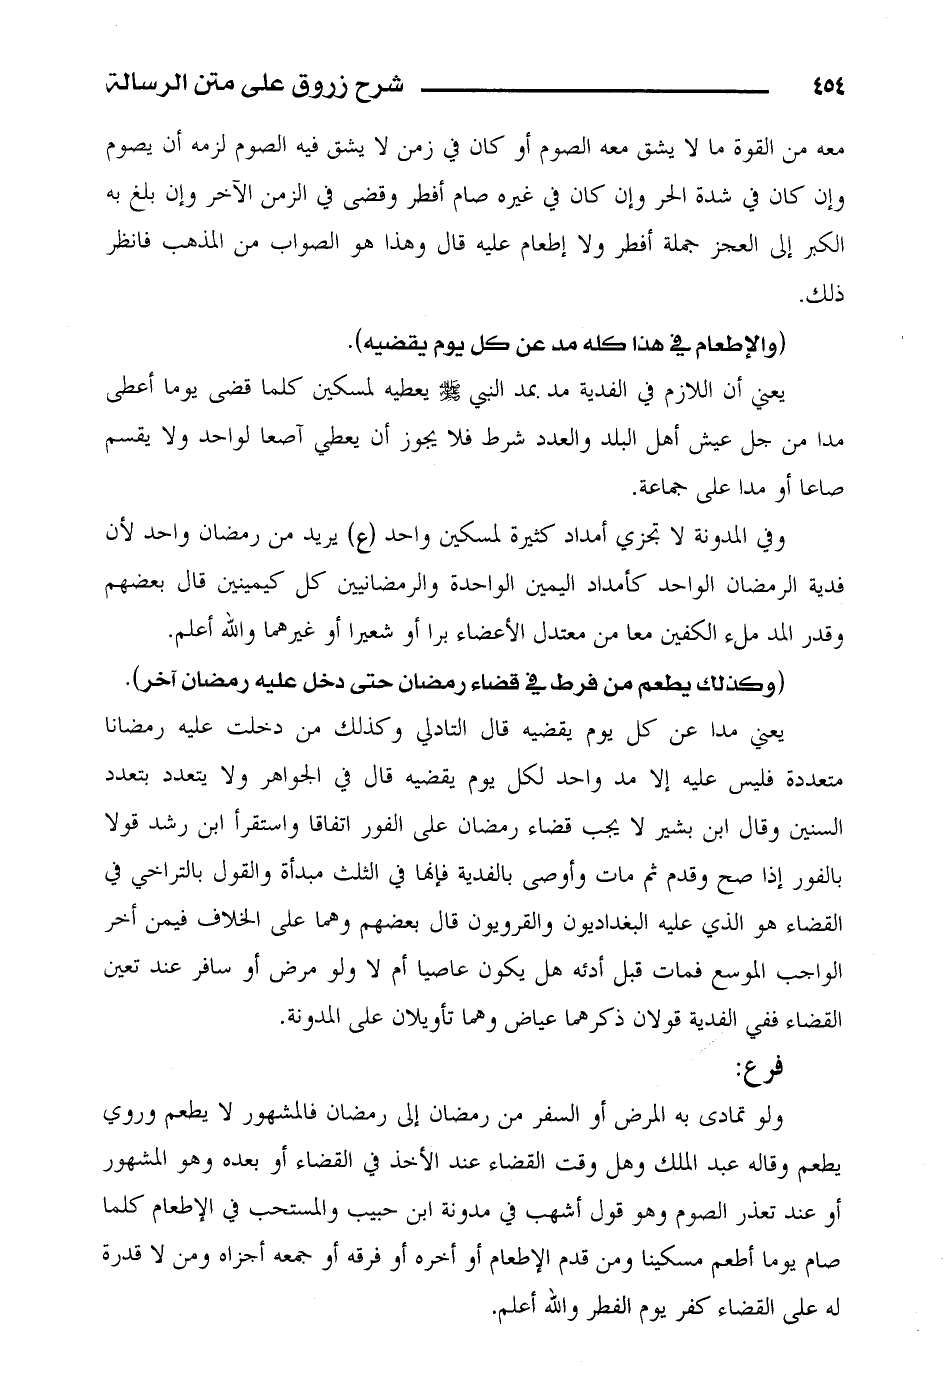 ٤٥٤ شرح زروق على متن الرسالة
معه من القوة ما لا يشق معه الصوم أو كان في زمن لا يشق فيه الصوم لزمه أن يصوم
وإن كان في شدة الحر وإن كان في غيره صام أفطر وقضى في الزمن الآخر وإن بلغ به
الكبر إلى العجز جملة أفطر ولا إطعام عليه قال وهذا هو الصواب من المذهب فانظر
ذلك.
(والإطعام في هذا كله مد عن كل يوم يقضيه).
يعني أن اللازم في الفدية مد بمد النبي ﷺ يعطيه لمسكين كلما قضى يوما أعطى
مدا من جل عيش أهل البلد والعدد شرط فلا يجوز أن يعطي آصعا لواحد ولا يقسم
صاعا أو مدا على جماعة.
وفي المدونة لا تجزي أمداد كثيرة لمسكين واحد (ع) يريد من رمضان واحد لأن
فدية الرمضان الواحد كأمداد اليمين الواحدة والرمضانيين كل كيمينين قال بعضهم
وقدر المد ملء الكفين معا من معتدل الأعضاء برا أو شعيرا أو غيرهما والله أعلم.
(وكذلك يطعم من فرط في قضاء رمضان حتى دخل عليه رمضان آخر).
يعني مدا عن كل يوم يقضيه قال التادلي وكذلك من دخلت عليه رمضانا
متعددة فليس عليه إلا مد واحد لكل يوم يقضيه قال في الجواهر ولا يتعدد بتعدد
السنين وقال ابن بشير لا يجب قضاء رمضان على الفور اتفاقا واستقرأ ابن رشد قولا
بالفور إذا صح وقدم ثم مات وأوصى بالفدية فإنها في الثلث مبدأة والقول بالتراخي في
القضاء هو الذي عليه البغداديون والقرويون قال بعضهم وهما على الخلاف فيمن أخر
الواجب الموسع فمات قبل أدئه هل يكون عاصيا أم لا ولو مرض أو سافر عند تعين
القضاء ففي الفدية قولان ذكرهما عياض وهما تأويلان على المدونة.
فرع:
ولو تمادى به المرض أو السفر من رمضان إلى رمضان فالمشهور لا يطعم وروي
يطعم وقاله عبد الملك وهل وقت القضاء عند الأخذ في القضاء أو بعده وهو المشهور
أو عند تعذر الصوم وهو قول أشهب في مدونة ابن حبيب والمستحب في الإطعام كلما
صام يوما أطعم مسكينا ومن قدم الإطعام أو أخره أو فرقه أو جمعه أجزاه ومن لا قدرة
له على القضاء كفر يوم الفطر والله أعلم.